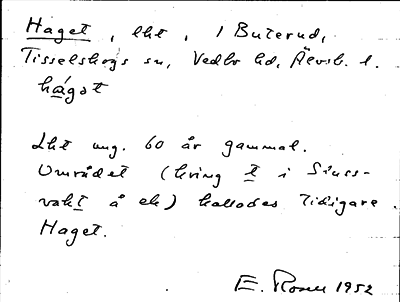 Haget, lht, 1 Buterud,
Tisselskogs sn, Vedbo hd, Älvsb. l.
hágət
Lht ung. 60 år gammal.
Området (kring t i Sluss-
vakt å ek) kallades tidigare
Haget.
E. Rosen 1952